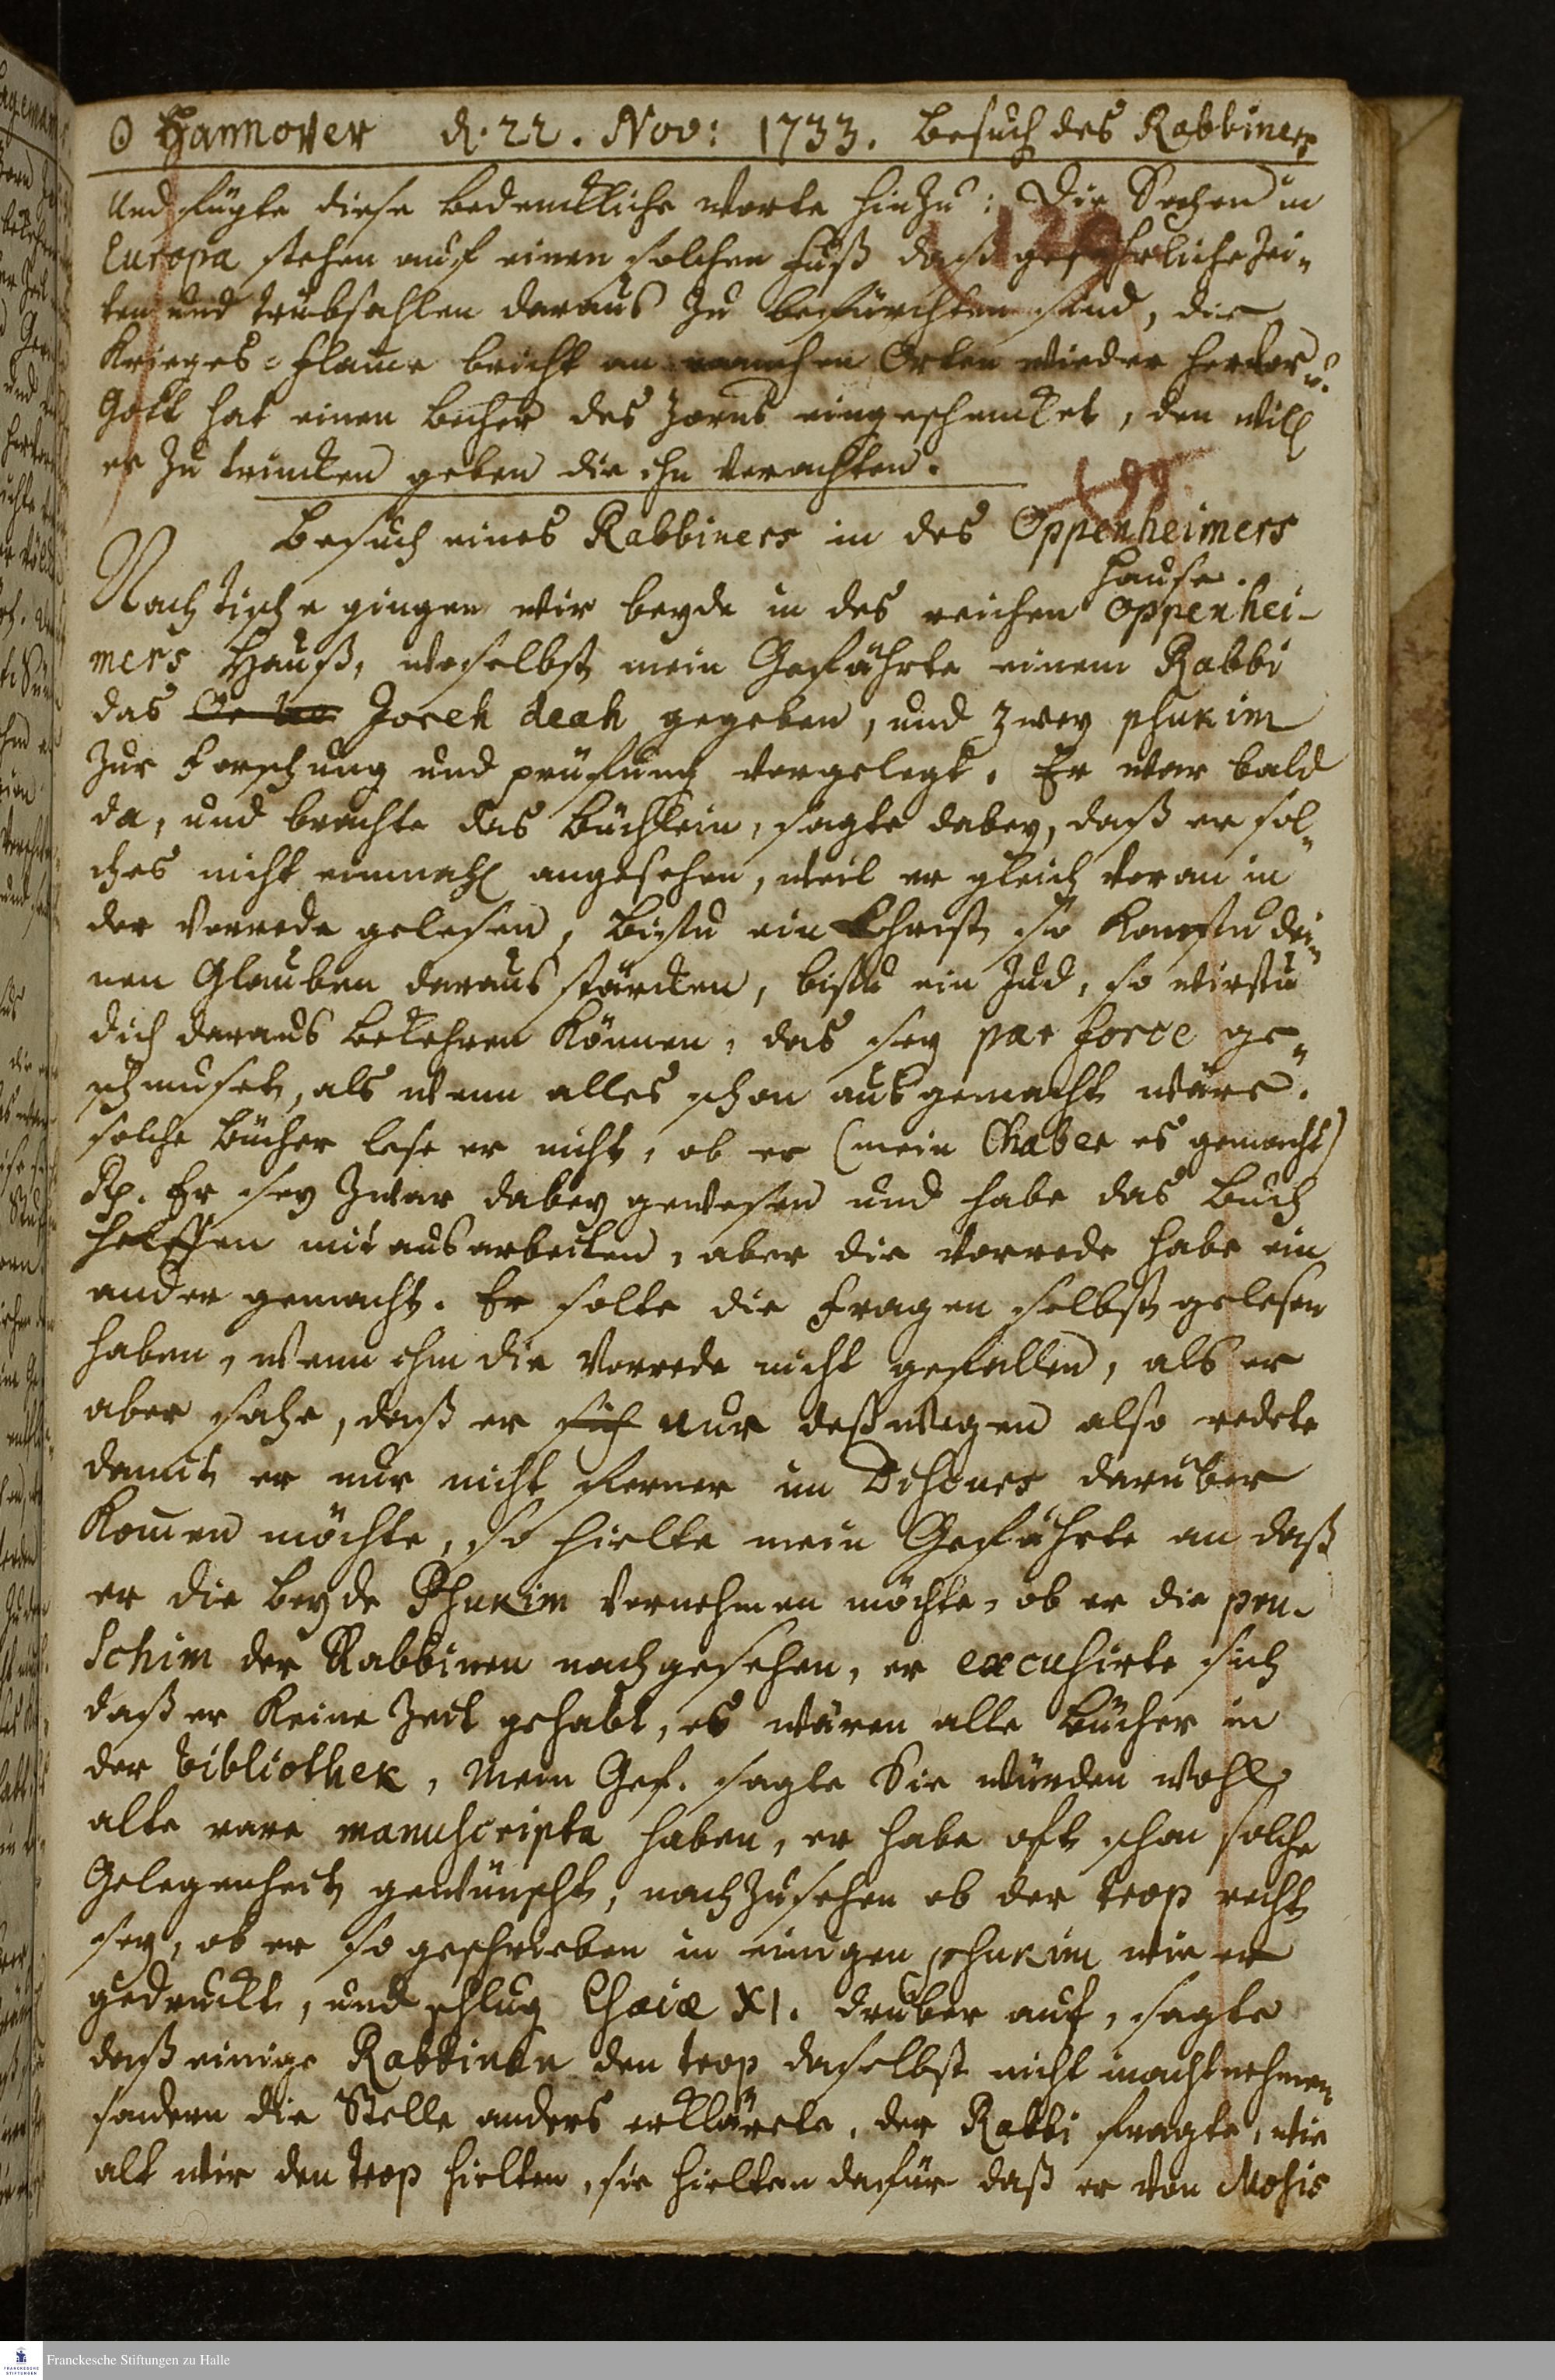 ☉ Hannover d. 22. Nov: 1733. Besuch des Rabbiners
und fügte diese bedenckliche Worte hinzu: Die Sachen in
Europa stehen auf einen solchen Fuß daß gefährliche Zei-
ten und Trübsahlen daraus zu befürchten sind, die
Krieges-Flame bricht an manchen Orten wieder hervor u.
Gott hat einen Becher des Zorns eingeschencket, den will
er zu trincken geben die ihn verachten.
199
Besuch eines Rabbiners in des Oppenheimers
Hause.
Nach Tische gingen wir beyde in des reichen Oppenhei-
mers Hauß, woselbst mein Gefährte einem Rabbi
das Joreh deah gegeben, und zwey phukim
zur Forschung und prüfung vorgelegt. Er war bald
da, und brachte das Büchlein, sagte dabey, daß er sol-
ches nicht einmahl angesehen, weil er gleich voran in
der Vorrede gelesen, bistu ein Christ so kanstu dei-
nen Glauben daraus stärcken, bistu ein Jud, so wirstu
dich daraus bekehren können, das sey par force ge-
schmuset, als wenn alles schon ausgemacht wäre.
solche Bücher lese er nicht, ob er (mein Chaber es gemacht)
Rp. Er sey zwar dabey gewesen und habe das Buch
helffen mit ausarbeiten, aber die Vorrede habe ein
ander gemacht. Er solte die Fragen selbst gelesen
haben, wenn ihm die Vorrede nicht gefallen, als er
aber sahe, daß er sich nur deßwegen also redete
damit er nur nicht ferner im Dischcurs darüber
komen möchte, so hielte mein Gefährte an daß
er die beyde Phukim vornehmen möchte, ob er die peru-
schim der Rabbinen nachgesehen, er excusirte sich
daß er keine Zeit gehabt, es wären alle Bücher in
der bibliothek, Mein Gef. sagte Sie würden wohl
alte rare manuscripta haben, er habe oft schon solche
Gelegenheit gewünscht, nachzusehen ob der trop recht
sey, ob er so geschrieben in einigen phukim wie er
gedruckt, und schlug Esaiæ XI. drüber auf, sagte
daß einige Rabbinen den trop daselbst nicht in acht nehmen
sondern die Stelle anders erklärete, der Rabbi fragte, wie
alt wir den trop hielten, sie hielten dafür daß er von Mosis
Franckesche Stiftungen zu Halle